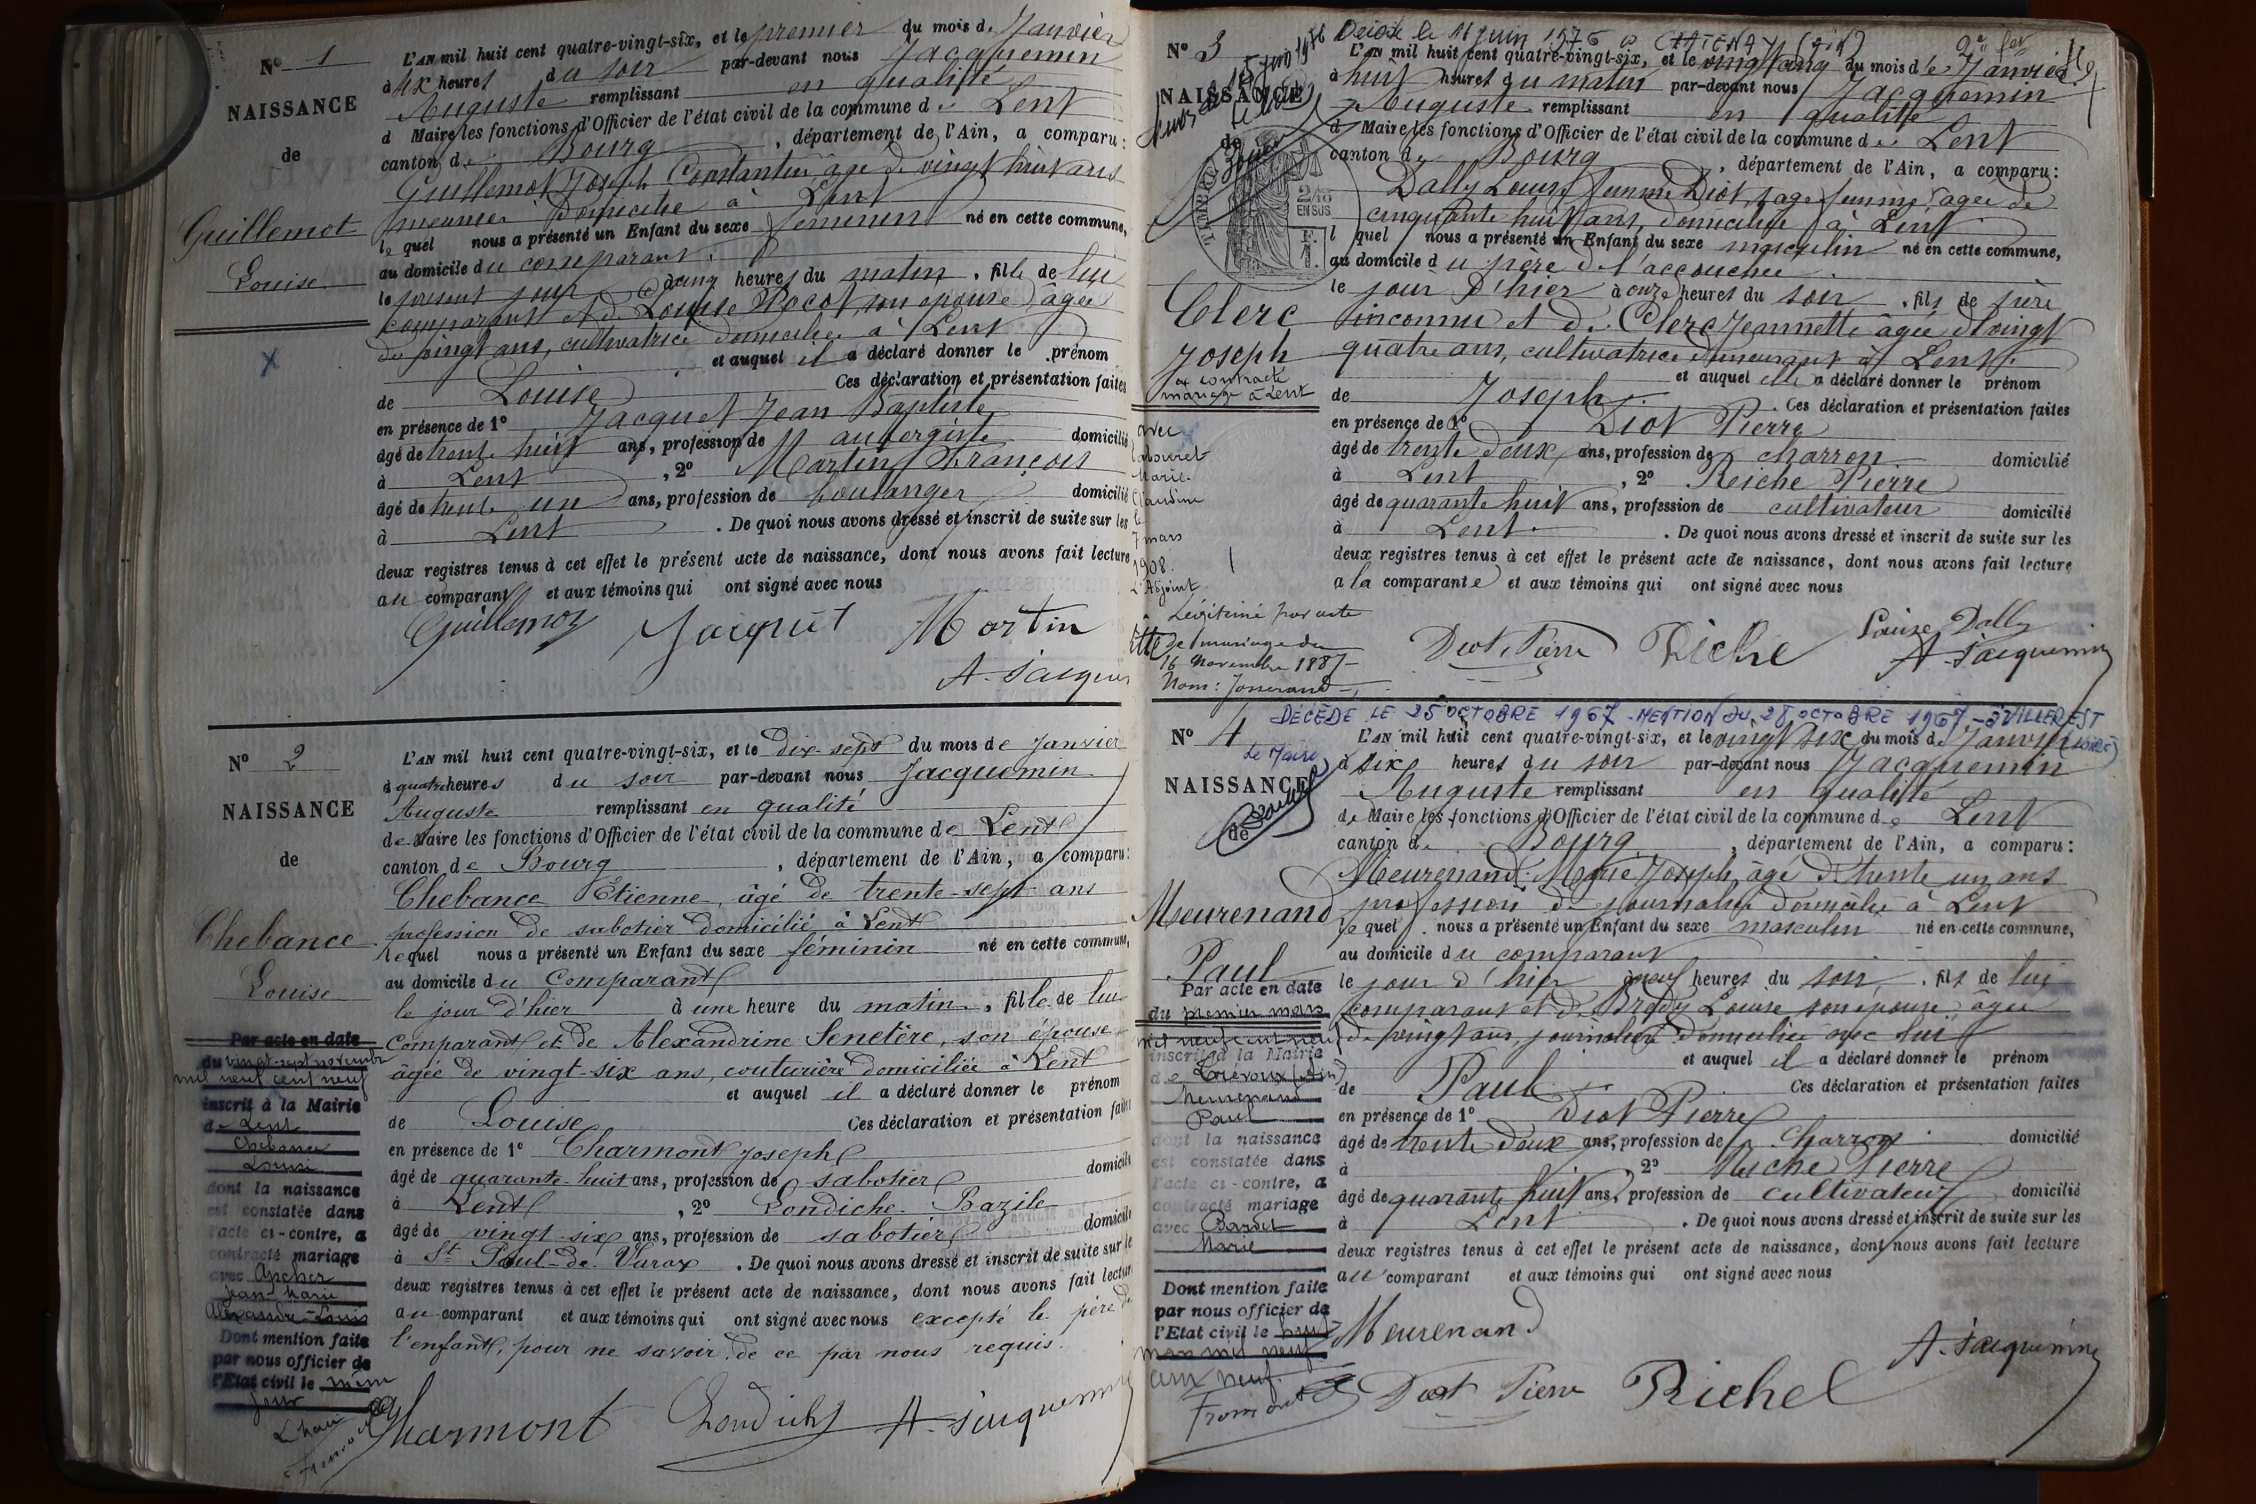 N° 1
NAISSANCE
de
Guillemot
Louise
L'AN mil huit cent quatre-vingt-six, et le premier du mois de Janvier
à six heures du soir par-devant nous Jacquemin
Auguste remplissant en qualité
d Maire les fonctions d'Officier de l'état civil de la commune de Lent
canton de Bourg, département de l'Ain, a comparu:
Guillemot Joseph Constantin âgé de vingt huit ans
meunier domicilié à Lent
lequel nous a présenté un Enfant du sexe féminin né en cette commune,
au domicile du comparant
le présent jour à cinq heures du matin, fille de lui
comparant et de Louise Pocot son épouse âgée
de vingt ans, cultivatrice domiciliée à Lent
et auquel il a déclaré donner le prénom
de Louise Ces déclaration et présentation faites
en présence de 1° Jacquet Jean Baptiste
âgé de trente huit ans, profession de aubergiste domicilié
à Lent, 2° Martin François
âgé de trente un ans, profession de boulanger domicilié
à Lent. De quoi nous avons dressé et inscrit de suite sur les
deux registres tenus à cet effet le présent acte de naissance, dont nous avons fait lecture
au comparant et aux témoins qui ont signé avec nous
Guillemot Jacquet Martin
A. Jacquemin
N° 2
NAISSANCE
de
Chebance
Louise
Par acte en date
du vingt-sept novembre
mil neuf cent neuf
inscrit à la Mairie
de Lent
Chebance
Louise
dont la naissance
est constatée dans
l'acte ci-contre, a
contracté mariage
avec Ascher
Jean-Marie
Alexandre-Louis
Dont mention faite
par nous officier de
l'Etat civil le même
jour
L'AN mil huit cent quatre-vingt-six, et le dix-sept du mois de Janvier
à quatre heures du soir par-devant nous Jacquemin
Auguste remplissant en qualité
de Maire les fonctions d'Officier de l'état civil de la commune de Lent
canton de Bourg, département de l'Ain, a comparu:
Chebance Étienne, âgé de trente-sept ans
profession de sabotier domicilié à Lent
lequel nous a présenté un Enfant du sexe féminin né en cette commune,
au domicile du comparant
le jour d'hier à une heure du matin, fille de lui
comparant et de Alexandrine Senetère, son épouse
âgée de vingt-six ans, couturière domiciliée à Lent
et auquel il a déclaré donner le prénom
de Louise Ces déclaration et présentation faites
en présence de 1° Charmont Joseph
âgé de quarante-huit ans, profession de sabotier domicilié
à Lent, 2° Londiche Bazile
âgé de vingt-six ans, profession de sabotier domicilié
à St Paul-de-Varax. De quoi nous avons dressé et inscrit de suite sur les
deux registres tenus à cet effet le présent acte de naissance, dont nous avons fait lecture
au comparant et aux témoins qui ont signé avec nous excepté le père de
l'enfant, pour ne savoir, de ce par nous requis.
Charmont Londiche A. Jacquemin
Décédé le 11 juin 1976 à CHATENAY (Ain)
N° 3
NAISSANCE
de
TIMBRE
2/10
EN SUS
Clerc
Joseph
a contracté
mariage à Lent
avec
Marie
Claudine
le
7 mars
1908.
L'Adjoint
Légitimé par acte
de mariage du
16 Novembre 1887
Nom: Josserand
L'AN mil huit cent quatre-vingt-six, et le vingt cinq du mois de Janvier
à huit heures du matin par-devant nous Jacquemin
Auguste remplissant en qualité
d Maire les fonctions d'Officier de l'état civil de la commune de Lent
canton de Bourg, département de l'Ain, a comparu:
Dally Louise femme Diot, sage femme, agée de
cinquante huit ans, domiciliée à Lent
l quel nous a présenté un Enfant du sexe masculin né en cette commune,
au domicile du père de l'accouchée
le jour d'hier à onze heures du soir, fils de père
inconnu et de Clerc Jeannette âgée de vingt
quatre ans, cultivatrice demeurant à Lent
et auquel elle a déclaré donner le prénom
de Joseph. Ces déclaration et présentation faites
en présence de 1° Diot Pierre
âgé de trente deux ans, profession de charron domicilié
à Lent, 2° Reiche Pierre
âgé de quarante huit ans, profession de cultivateur domicilié
à Lent. De quoi nous avons dressé et inscrit de suite sur les
deux registres tenus à cet effet le présent acte de naissance, dont nous avons fait lecture
a la comparante et aux témoins qui ont signé avec nous
Diot Pierre Richel Louise Dally
A. Jacquemin
DÉCÉDÉ LE 25 OCTOBRE 1967 - MENTION DU 28 OCTOBRE 1967 - à VILLEREST
(LOIRE)
Le Maire,
N° 4
NAISSANCE
de
Meurenand
Paul
Par acte en date
du premier mars
mil neuf cent neuf
inscrit à la Mairie
de Trévoux (Ain)
Meurenand
Paul
dont la naissance
est constatée dans
l'acte ci-contre, a
contracté mariage
avec
Marie
Dont mention faite
par nous officier de
l'Etat civil le huit
mars mil neuf
cent neuf.
L'AN mil huit cent quatre-vingt-six, et le vingt six du mois de Janvier
à six heures du soir par-devant nous Jacquemin
Auguste remplissant en qualité
de Maire les fonctions d'Officier de l'état civil de la commune de Lent
canton de Bourg, département de l'Ain, a comparu:
Meurenand Marie Joseph, âgé de trente un ans
profession de journalier domicilié à Lent
le quel nous a présenté un Enfant du sexe masculin né en cette commune,
au domicile du comparant
le jour d'hier à neuf heures du soir, fils de lui
comparant et de Brady Louise son épouse âgée
de vingt ans, journalière domiciliée avec lui
et auquel il a déclaré donner le prénom
de Paul Ces déclaration et présentation faites
en présence de 1° Diot Pierre
âgé de trente deux ans, profession de Charron domicilié
à , 2° Reiche Pierre
âgé de quarante huit ans, profession de cultivateur domicilié
à Lent. De quoi nous avons dressé et inscrit de suite sur les
deux registres tenus à cet effet le présent acte de naissance, dont nous avons fait lecture
au comparant et aux témoins qui ont signé avec nous
Meurenand A. Jacquemin
Diot Pierre Richel